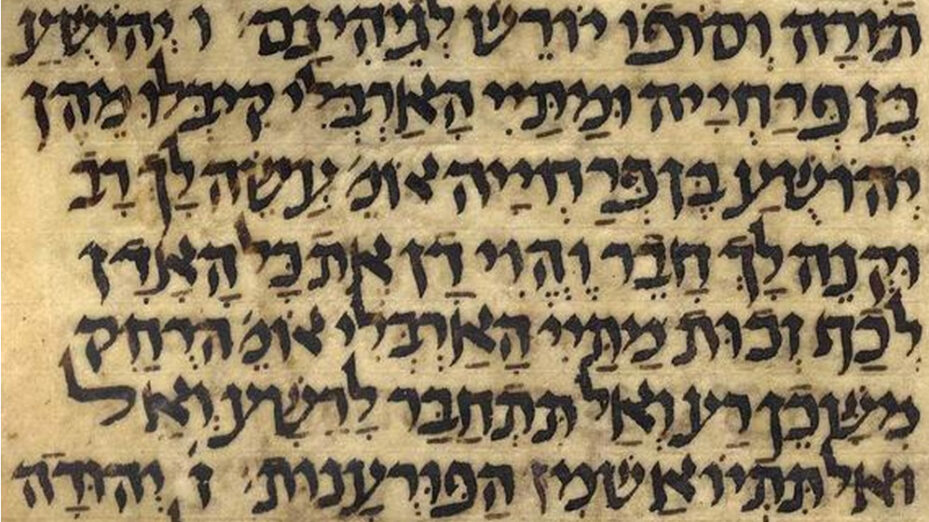 תּוֹרָה וְסוֹפוֹ יוֹרֵשׁ לְגֵיהִינָם׃ ו יְהוֹשֻׁעַ
בֶּן פְּרַחְיָיה וּמַתַּיי הָאַרְבֵּלִי קִיבְּלוּ מֵהֶן
יְהוֹשֻׁעַ בֶּן פְּרַחְיָיה אוֹמֵ׳ עֲשֵׂה לָךְ רַב
וּקְנֵה לָךְ חָבֵר וֶהֱוֵי דָן אֶת כָּל הָאָדָן
לְכַף זְכוּת מַתַּיי הָאַרְבֵּלִי אוֹמֵ׳ הַרְחֵק
מִשָּׁכֵן רַע וְאַל תִּתְחַבֵּר לָרָשָׁע וְאַל
וְאַל תִּתְיוֹאַשׁ מִין הַפּוּרְעָנוּת׃ ז יְהוּדָה